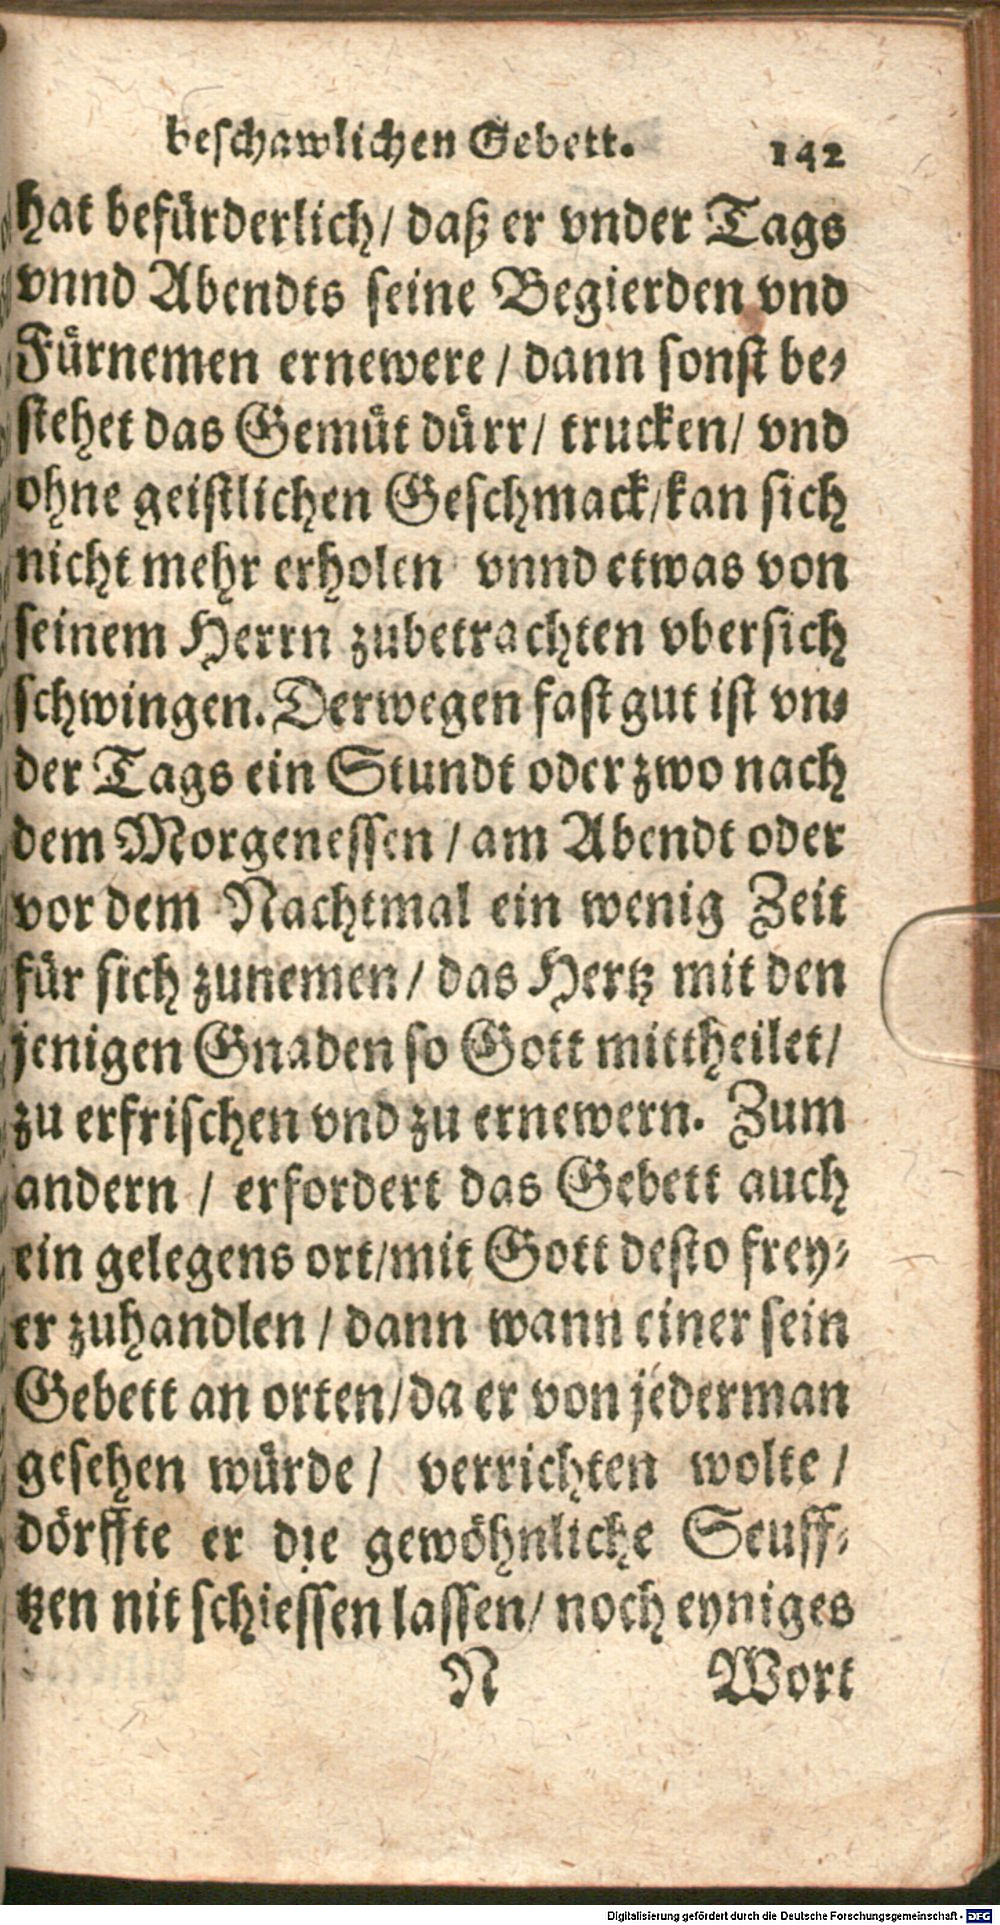 beschawlichen Gebett. 142
hat befürderlich/ daß er vnder Tags
vnnd Abendts seine Begierden vnd
Fürnemen ernewere / dann sonst be-
stehet das Gemüt dürr/ trucken/ vnd
ohne geistlichen Geschmack/kan sich
nicht mehr erholen vnnd etwas von
seinem Herrn zubetrachten vbersich
schwingen. Derwegen fast gut ist vn-
der Tags ein Stundt oder zwo nach
dem Morgenessen / am Abendt oder
vor dem Nachtmal ein wenig Zeit
für sich zunemen / das Hertz mit den
jenigen Gnaden so Gott mittheilet/
zu erfrischen vnd zu ernewern. Zum
andern / erfordert das Gebett auch
ein gelegens ort/mit Gott desto frey-
er zuhandlen / dann wann einer sein
Gebett an orten/da er von jederman
gesehen würde / verrichten wolte /
dörffte er die gewöhnliche Seuff-
tzen nit schiessen lassen/ noch eyniges
N Wort
Digitalisierung gefördert durch die Deutsche Forschungsgemeinschaft - DFG